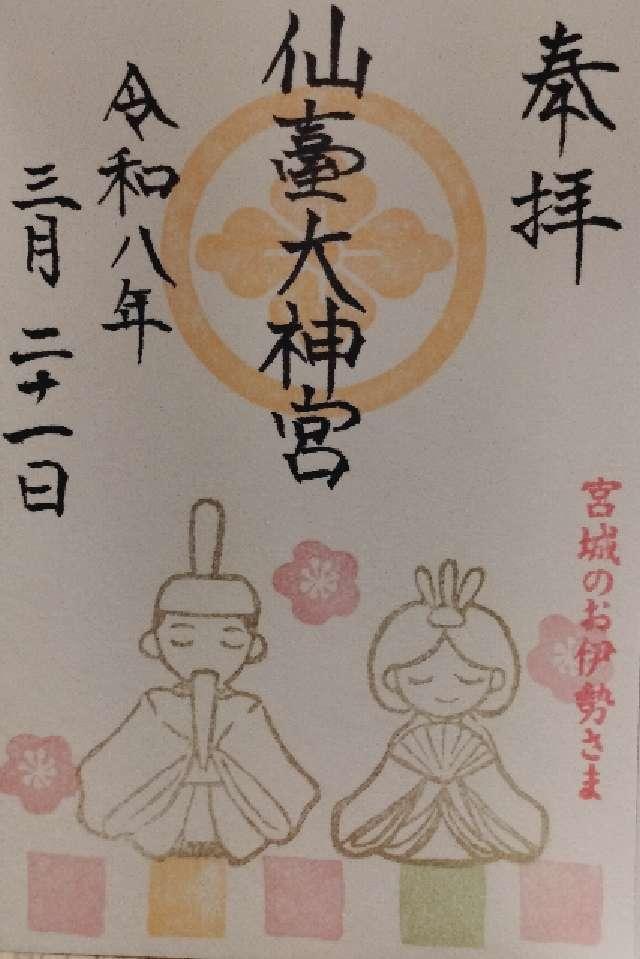 奉拝
仙臺大神宮
令和八年
三月二十一日
宮城のお伊勢さま